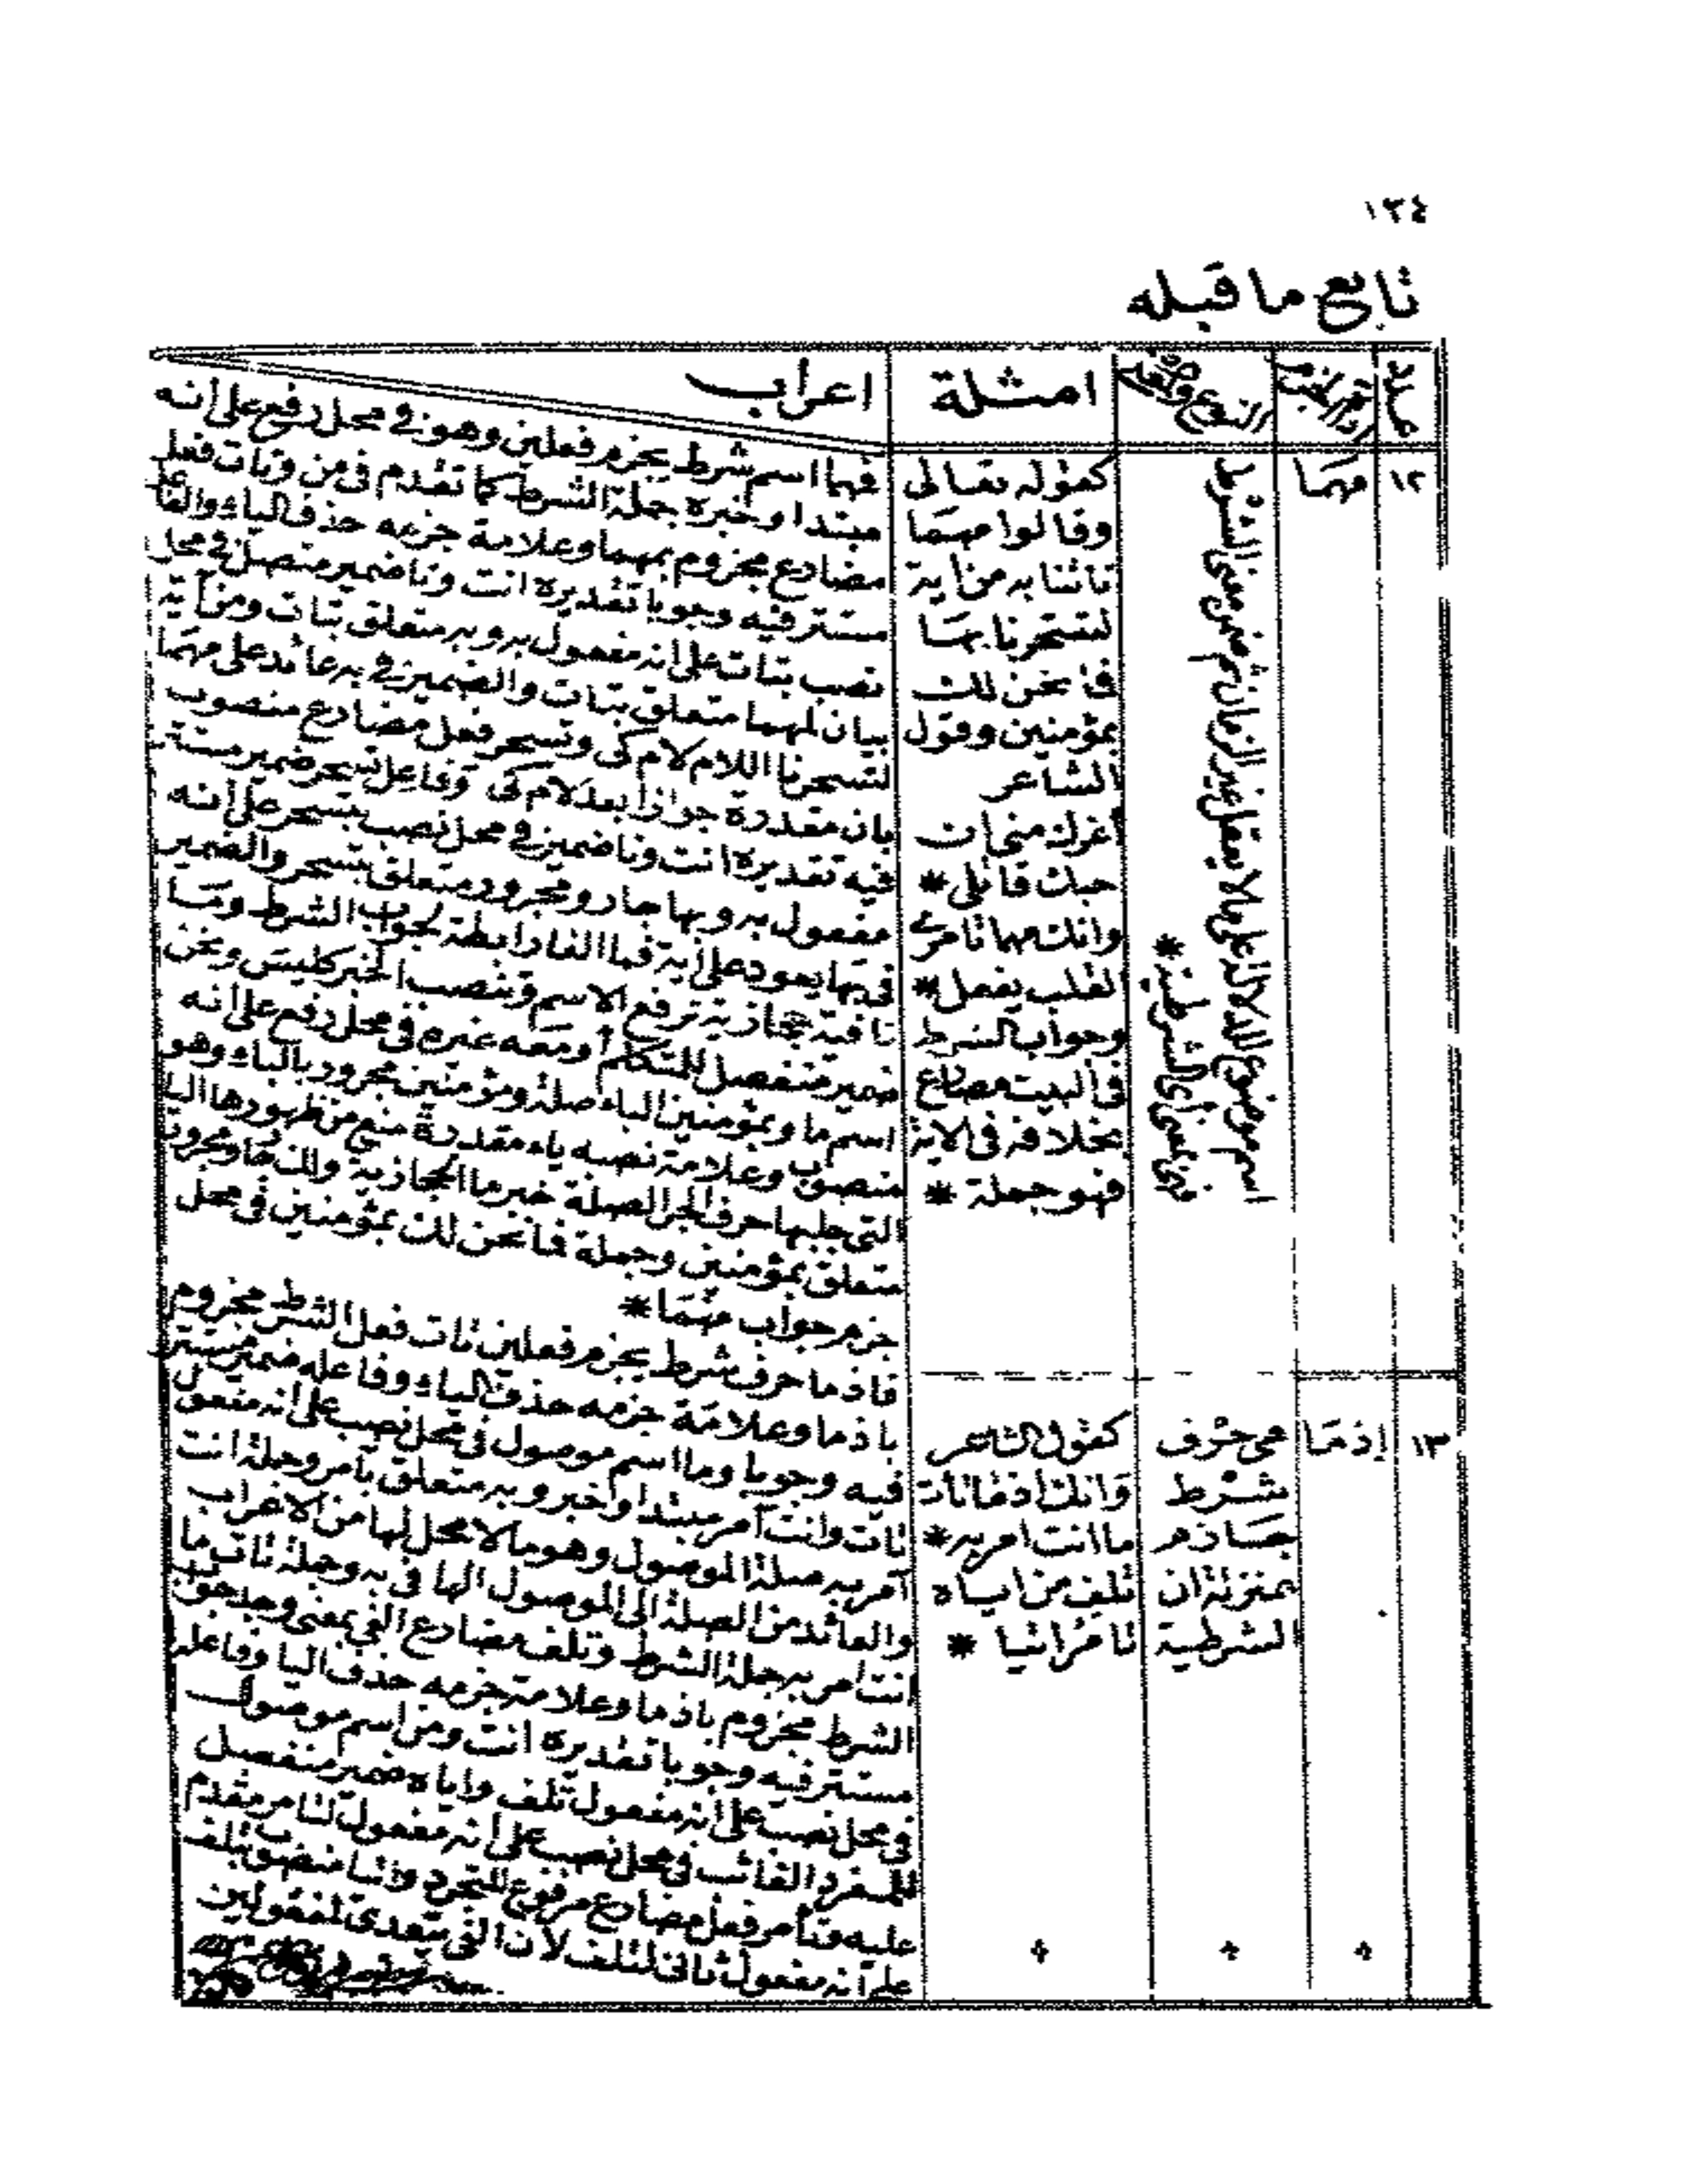 ١٣٤
تابع ما قبله
عدد
امثلة
اعراب
١٢
مهما
اسم موضوع للدلالة على ما لا يعقل غير الزمان ثم ضمن معنى الشرط
الشرطية *
كقوله تعالى
وقالوا مهما
تاتنا به من اية
لتسحرنا بها
فما نحن لك
بمؤمنين وقول
الشاعر
اغرك منى ان
حبك قاتلى *
وانك مهما تامرى
القلب يفعل *
وجواب الشرط
فى البيت مضارع
بخلافه فى الاية
فهو جملة *
فمهما اسم شرط يجزم فعلين وهو فى محل رفع على انه
مبتدا وخبره جملة الشرط كما تقدم فى من وتات فعل
مضارع مجزوم بمهما وعلامة جزمه حذف الياء والفاعل
مستتر فيه وجوبا تقديره انت ونا ضمير متصل فى محل
نصب بتات على انه مفعول به وبه متعلق بتات ومن آية
بيان لمهما متعلق بتات والضمير فى به عائد على مهما
لتسحرنا اللام لام كى وتسحر فعل مضارع منصوب
بان مقدرة جوازا بعد لام كى وفاعل تسحر ضمير مستتر
فيه تقديره انت ونا ضمير فى محل نصب بتسحر على انه
مفعول به وبها جار ومجرور متعلق بتسحر والضمير
فى بها يعود على آية فما الفا رابطة لجواب الشرط وما
نافية حجازية ترفع الاسم وتنصب الخبر كليس ونحن
ضمير منفصل للمتكلم او معه غيره فى محل رفع على انه
اسم ما وبمؤمنين الباء صلة ومؤمنين مجرور بالباء وهو
منصوب وعلامة نصبه ياء مقدرة منع من ظهورها اليا
التى جلبها حرف الجر الصلة خبر ما الحجازية ولك جار ومجرور
متعلق بمؤمنين وجملة فما نحن لك بمؤمنين فى محل
جزم جواب مهما *
١٣
إذما
هى حرف
شرط
جازم
بمنزلة ان
الشرطية
كقول الشاعر
وانك اذ ما تات
ما انت امر به *
تلف من اياه
تامر اتيا *
فاذ ما حرف شرط يجزم فعلين تات فعل الشرط مجزوم
باذ ما وعلامة جزمه حذف الياء وفاعله ضمير مستتر
فيه وجوبا وما اسم موصول فى محل نصب على انه مفعول
تات وانت آمر مبتدا وخبر وبه متعلق بآمر وجملة انت
آمر به صلة الموصول وهو ما لا محل لها من الاعراب
والعائد من الصلة الى الموصول الها فى به وجملة تات ما
انت امر به جملة الشرط وتلف مضارع الفى بمعنى وجد جواب
الشرط مجزوم باذ ما وعلامة جزمه حذف اليا وفاعله
مستتر فيه وجوبا تقديره انت ومن اسم موصول
فى محل نصب على انه مفعول تلف واياه ضمير منفصل
للمفرد الغائب فى محل نصب على انه مفعول لتامر مقدم
عليه وتامر فعل مضارع مرفوع للتجرد واتيا منصوب بتلف
على انه مفعول ثانى لتلف لان الفى يتعدى لمفعولين